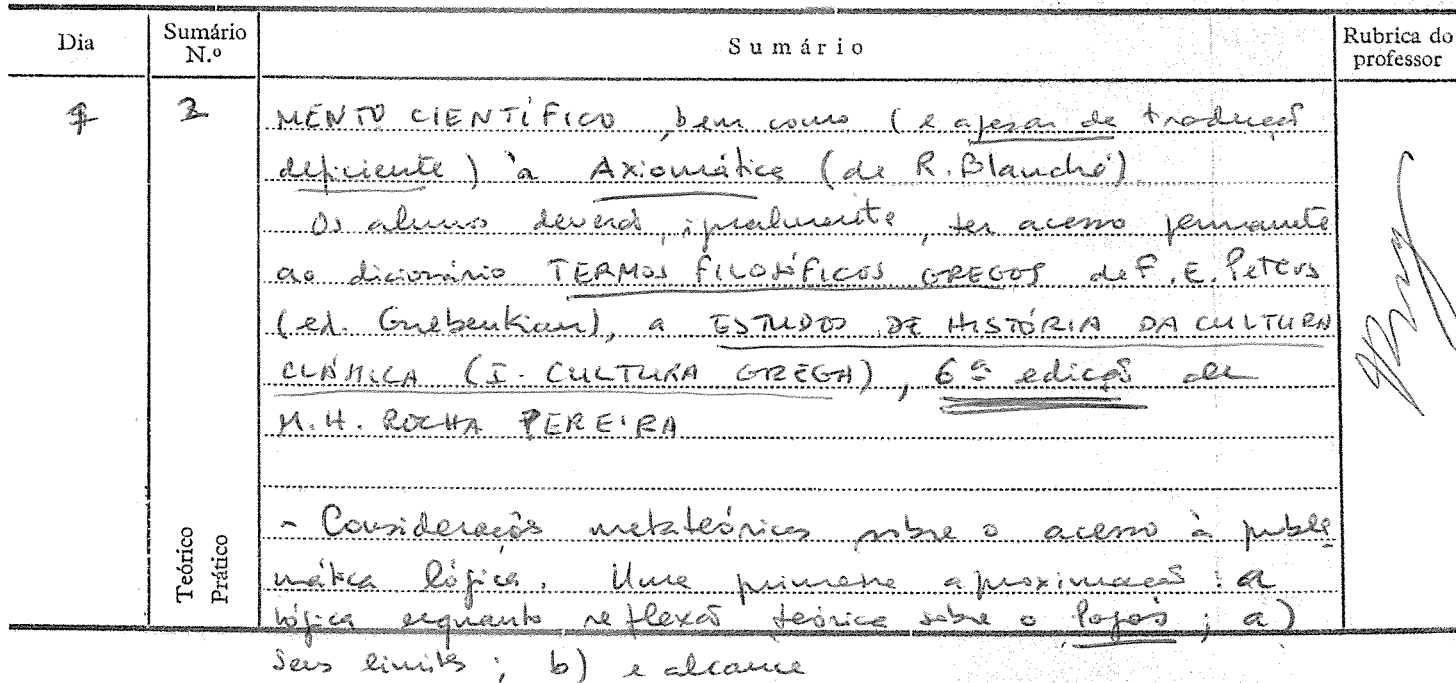 Dia
Sumário N.º
Sumário
Rubrica do professor
2
MENTO CIENTÍFICO, bem como (e apesar de tradução
deficiente) à Axiomática (de R. Blanché)
Os alunos deverão, igualmente, ter acesso permanente
ao dicionário TERMOS FILOSÓFICOS GREGOS de F. E. Peters
(ed. Gulbenkian), a ESTUDOS DE HISTÓRIA DA CULTURA
CLÁSSICA (I. CULTURA GREGA), 6ª edição de
M. H. ROCHA PEREIRA
- Considerações metateóricas sobre o acesso à proble
mática lógica. Uma primeira aproximação: a
lógica enquanto reflexão teórica sobre o logos; a)
seus limites; b) e alcance
Teórico
Prático